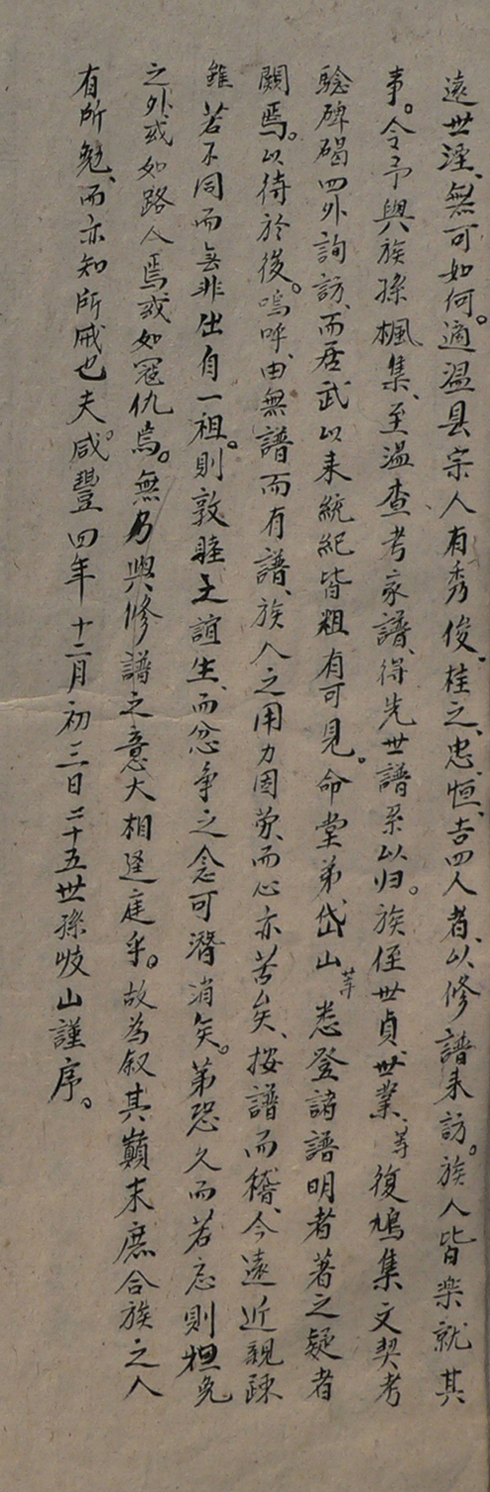 遠世湮、無可如何。適温县宗人有秀俊、桂之、忠、恒、吉四人者、以修譜来訪。族人皆楽就其
事。令予與族孫楓集、至温查考家譜、得先世譜系以归。族侄世貞、世業、等復鳩集文契考
騐碑碣四外詢訪、而居武以来統紀皆粗有可見。命堂弟、岱山等悉登諸譜明者著之疑者
闕焉。以待於後。嗚呼、由無譜而有譜、族人之用力固劳、而心亦苦矣、按譜而稽、今遠近親疎
雖若不同而無非出自一祖。則敦睦之誼生、而忿争之念可潛消矣。第恐久而若忘則袒免
之外或如路人焉或如冦仇焉。無乃與修譜之意大相逕庭乎。故為叙其巔末庶合族之人
有所勉、而亦知所戒也夫。咸豐四年十二月初三日二十五世孫岐山謹序。